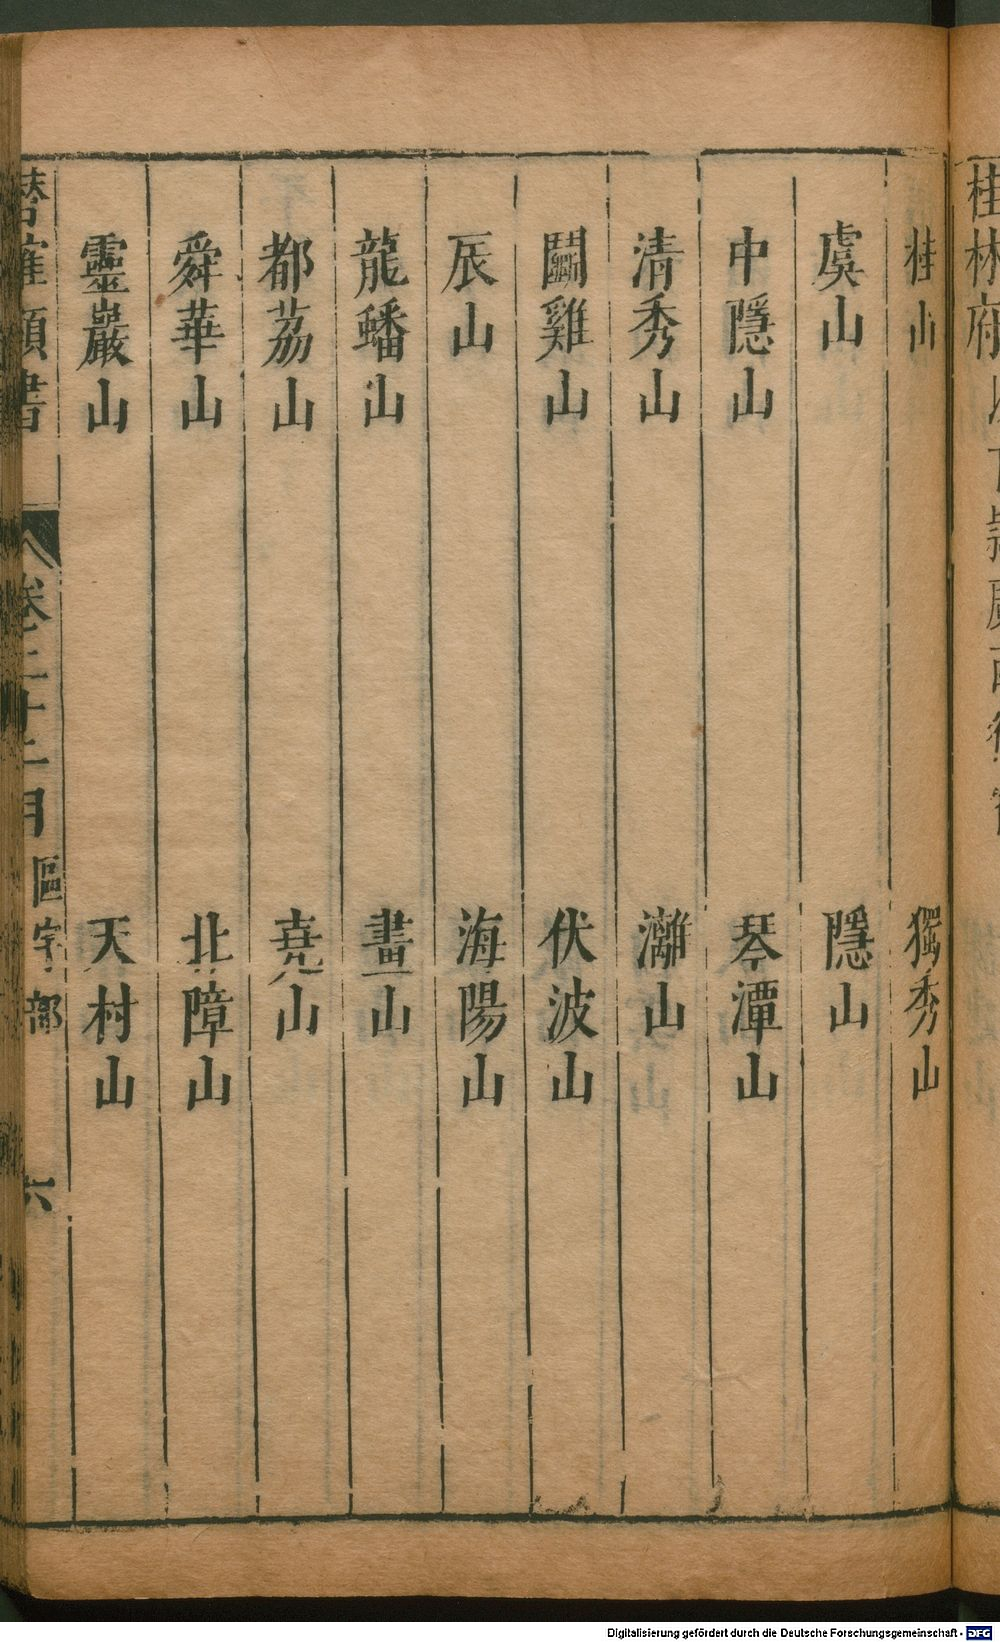 桂林府
桂山 獨秀山
虞山 隱山
中隱山 琴潭山
清秀山 灕山
鬭雞山 伏波山
辰山 海陽山
龍蟠山 畫山
都荔山 堯山
舜華山 北障山
靈巖山 天村山
潛確類書 卷二十二目 區宇部 六
Digitalisierung gefördert durch die Deutsche Forschungsgemeinschaft - DFG